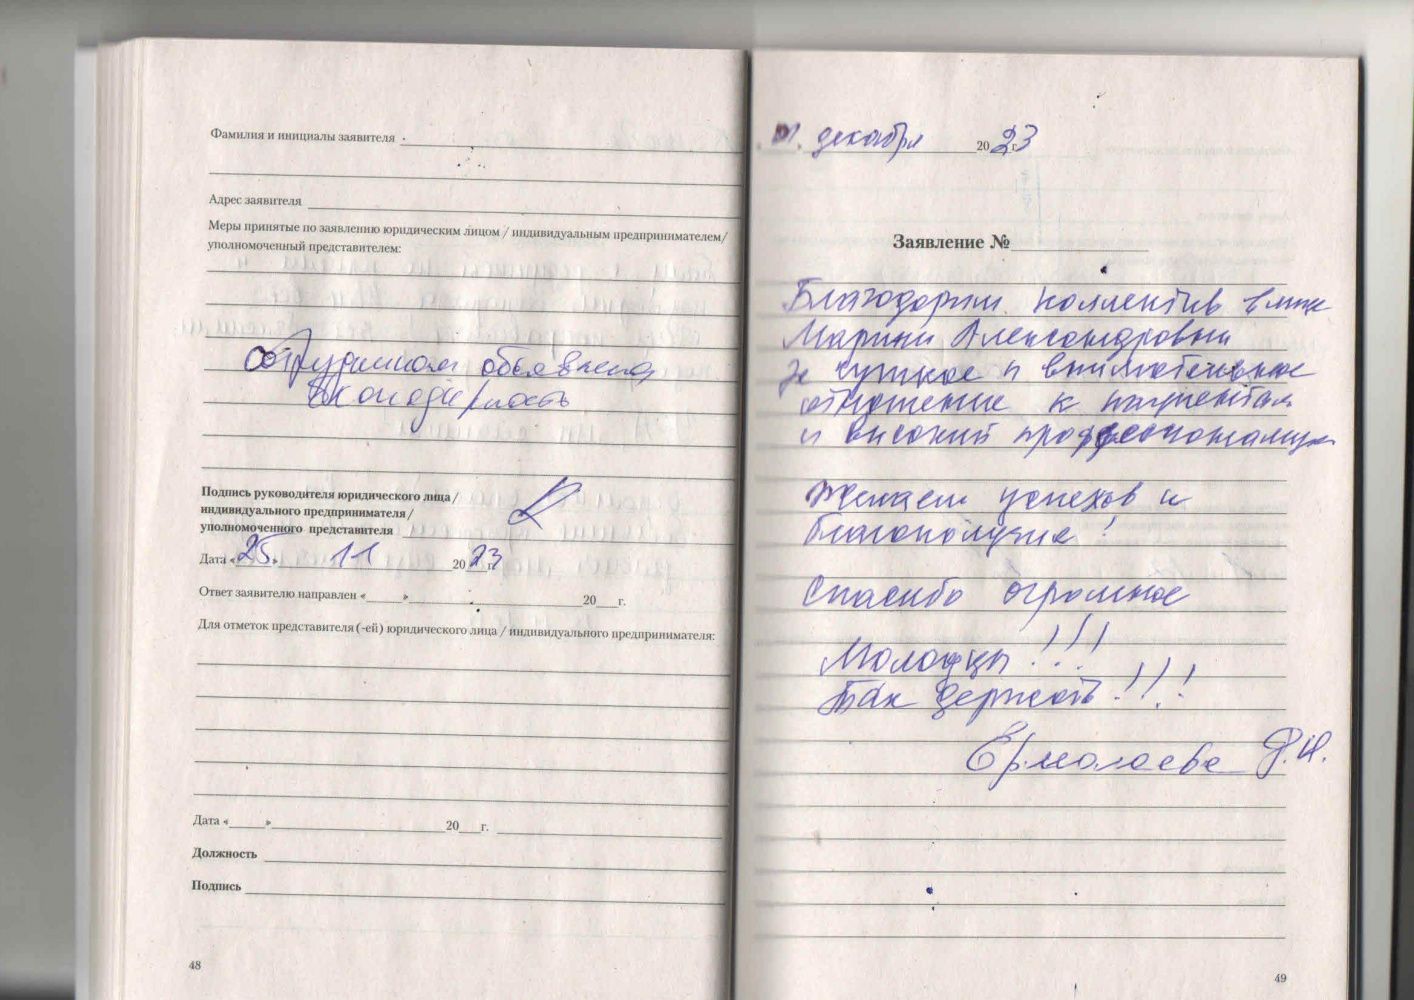 Фамилия и инициалы заявителя
Адрес заявителя
Меры принятые по заявлению юридическим лицом / индивидуальным предпринимателем/
уполномоченный представителем:
сотрудникам объявлена
благодарность
Подпись руководителя юридического лица /
индивидуального предпринимателя /
уполномоченного представителя
Дата «25» 11 2023 г.
Ответ заявителю направлен «___»___ 20___г.
Для отметок представителя (-ей) юридического лица / индивидуального предпринимателя:
Дата «___»___ 20___г.
Должность
Подпись
48
декабря 2023 г.
Заявление №
Благодарим коллектив в лице
Марины Александровны
за чуткое и внимательное
отношение к пациентам
и высокий профессионализм
Желаем успехов и
благополучия!
Спасибо огромное
Молодцы!!!
Так держать!!!
Ермолаева Р.И.
49